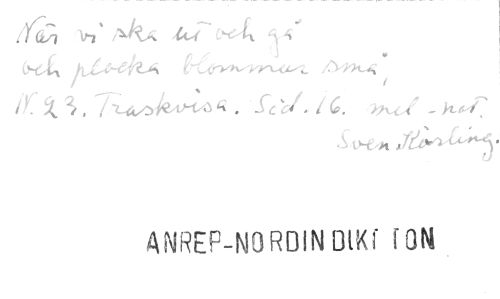 När vi ska ut och gå
och plocka blommar små,
N. 23. Traskvisa. Sid. 16. mel-not.
Sven Körling.
ANREP-NORDIN DIKT TON